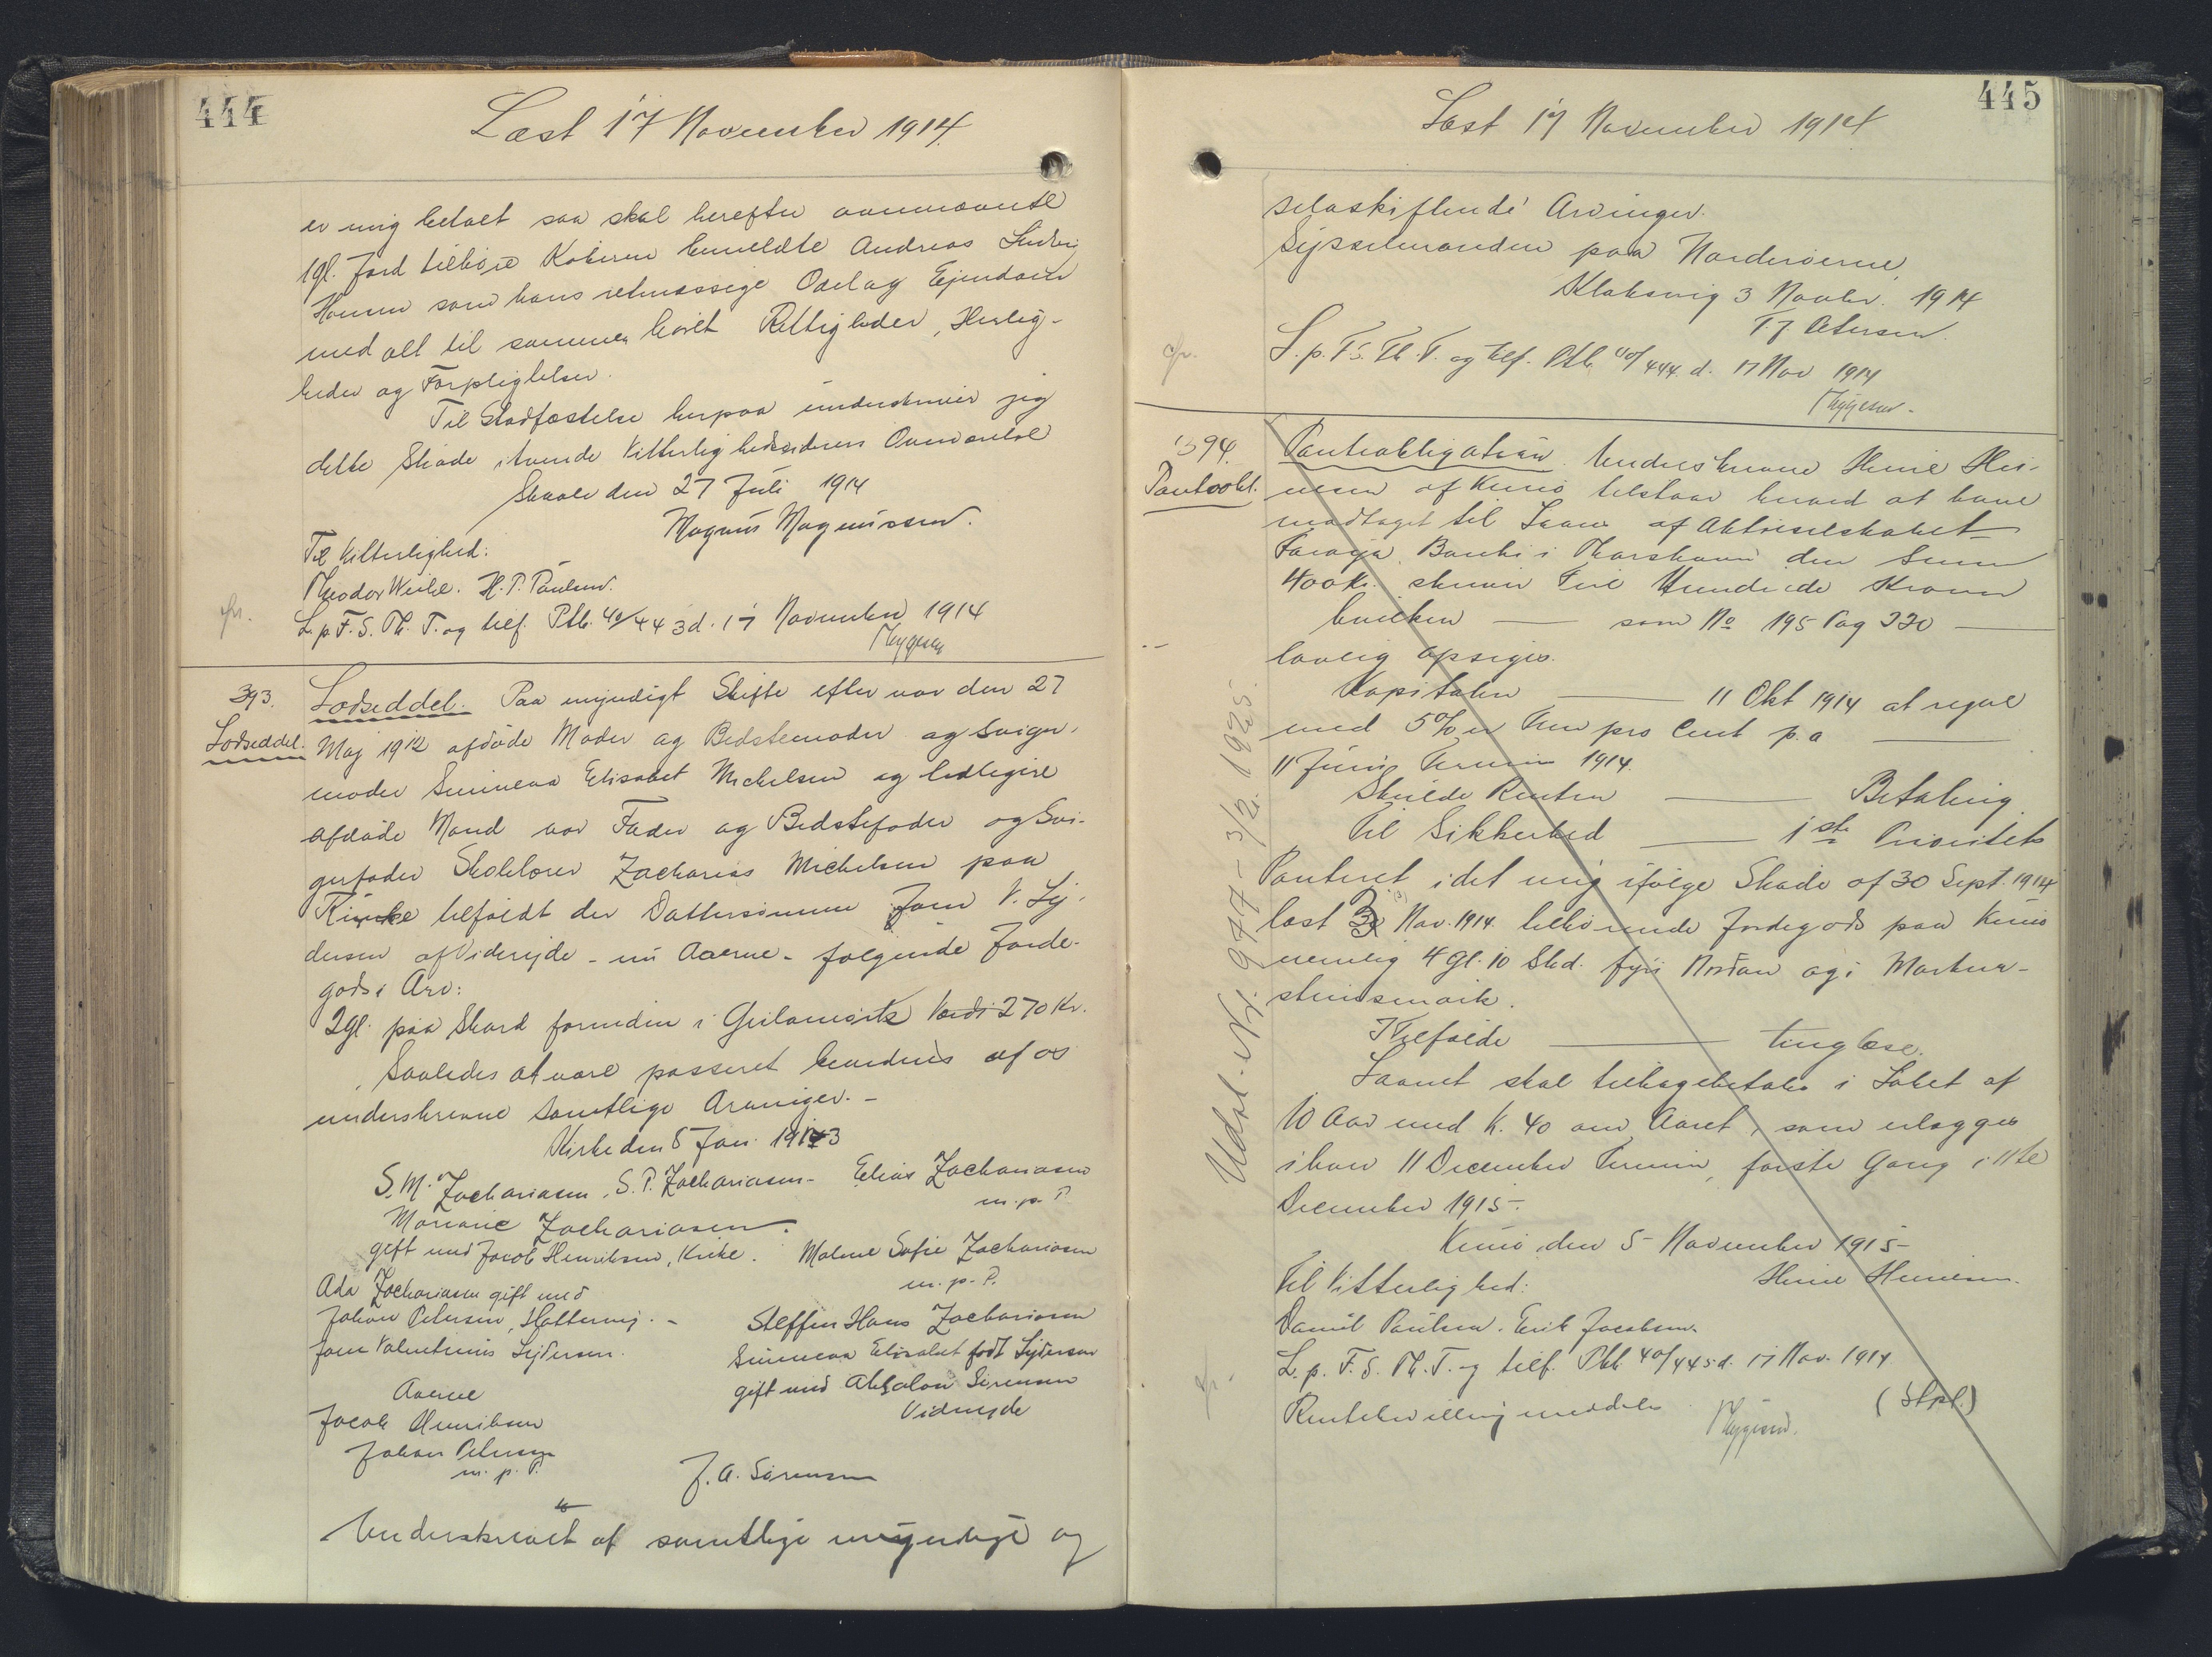 444
Læst 17 November 1914.
er mig betalt saa skal herefter ovennævnte
1 gl. Jord tilhøre Køberen bemeldte Andreas Ludvig
Hansen som hans retmæssige Odel og Ejendom
med alt til sammen hørt Rettigheder, Herlig-
heder og Forpligtelser.
Til Stadfæstelse herpaa underskriver jeg
dette Skøde i tvende Vitterlighedsvidners Overværelse
Skaale den 27 Juli 1914
Magnus Magnussen.
Til Vitterlighed:
Theodor Weihe. H. P. Poulsen.
cfr.
L. p. F. S. Th. T. og tilf. Ptb. 40/443 d. 17 November 1914
Thygesen
393.
Lodseddel.
Lodseddel. Paa myndigt Skifte efter vor den 27
Maj 1912 afdøde Moder og Bedstemoder og Sviger-
moder Sunneva Elisabet Michelsen og tidligere
afdøde Mand vor Fader og Bedstefader og Svi-
gerfader Skolelærer Zacharias Michelsen paa
Kirke tilfaldt der Dattersønnen Joen V. Lyj-
dersen af Viderejde - nu Aaerne - følgende Jorde-
gods i Arv:
2 gl. paa Skard foruden i Værdi 270 Kr.
Saaledes at være passeret bevidnes af os
underskrevne samtlige Arvinger. -
Kirke den 5 Jan. 1913
S. M. Zachariasen. S. P. Zachariasen - Elias Zachariasen
m. p. P.
Marianne Zachariasen.
gift med Jacob Henriksen, Kirke. Malene Sofie Zachariasen
m. p. P.
Ada Zachariasen gift med
Johan Petersen, Hattervig. -
Steffen Hans Zachariasen
Joen Valentinus Lyjdersen.
Sunneva Elisabet født Lyjdersen
Aaerne
gift med Absalon Sørensen
Viderejde
Jacob Henriksen
Johan Petersen
m. p. P.
J. A. Sørensen
Underskrevet af samtlige myndige og
445
Læst 17 November 1914
selvskiftende Arvinger.
Sysselmanden paa Norderøerne,
Klaksvig 3 Novbr. 1914
T. J. Petersen.
cfr.
L. p. F. S. Th. T. og tilf. Ptb. 40/444. d. 17 Nov 1914
Thygesen.
394.
Pantoobl.
Pantobligation. Underskrevne Heine Hei-
nesen af Kunø tilstaar herved at have
modtaget til Laans af Aktieselskabet
Føroya Banki i Thorshavn den Sum
400 Kr. skriver Fire Hundrede Kroner
hvilken — som No 195 Pag 330 —
lovlig opsiges.
Kapitalen — 11 Okt 1914 at regne
med 5% er Fem pro Cent p. a —
11 Juni Termin 1914.
Skulde Renten — Betaling
Til Sikkerhed — 1ste Prioritets
Panteret i det mig ifølge Skøde af 30 Sept. 1914
læst 3 Nov. 1914 tilhørende Jordegods paa Kunø
nemlig 4 Gl. 10 Skd. fyri Nordan og i Markna-
steinsmørk.
I Tilfælde — tinglæse.
Laanet skal tilbagebetales i Løbet af
10 Aar med K. 40 om Aaret, som erlægges
i hver 11 December Termin, første Gang i 11te
December 1915.
Kunø, den 5 November 1915
Til Vitterlighed:
Heine Heinesen.
Daniel Poulsen. Erik Jacobsen.
L. p. F. S. Th. T. og tilf. Ptb. 40/445 d. 17 Nov. 1914
Rentebevilling meddeles
Thygesen.
(Stpl.)
Udsl. Nr. 977 - 3/2. 1925.